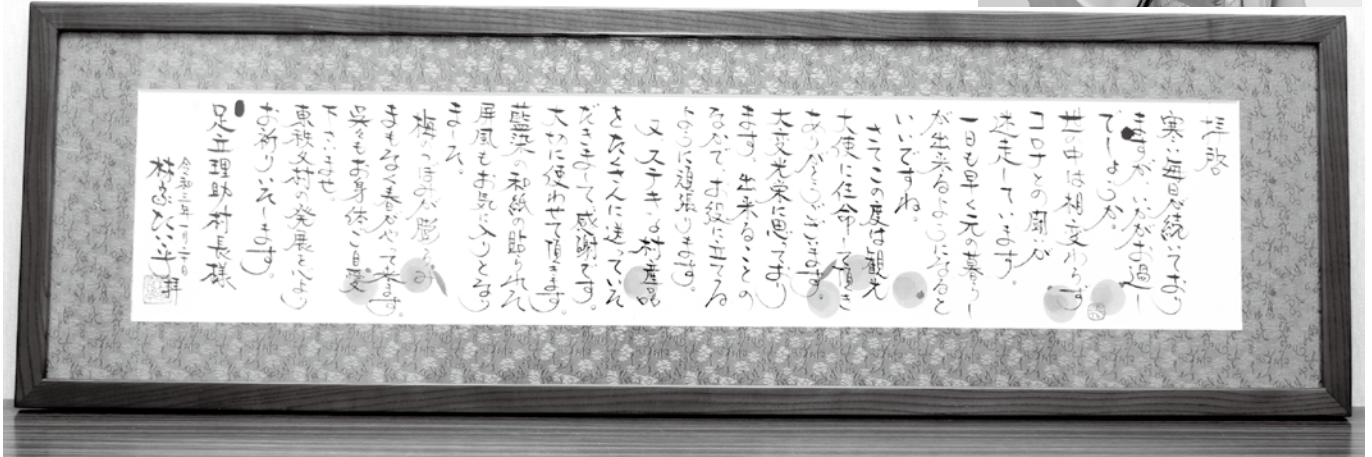 拝啓
寒い毎日が続いており
ますが、いかがお過し
でしょうか。
世の中は相変わらず
コロナとの闘いが
迷走しています。
一日も早く元の暮らし
が出来るようになると
いいですね。
さてこの度は観光
大使に任命して頂き
ありがとうございます。
大変光栄に思っており
ます。出来ることの
なかで、お役に立てる
ように頑張ります。
又、ステキな村産品
をたくさんに送っていた
だきまして感謝です。
大切に使わせて頂きます。
藍染の和紙の貼られた
屏風もお気に入りとなり
ました。
梅のつぼみが膨らみ
まもなく春がやって来ます。
呉々もお身体ご自愛
下さいませ。
東秩父村の発展を心より
お祈りいたします。
足立理助村長様
令和三年一月二十日
拝